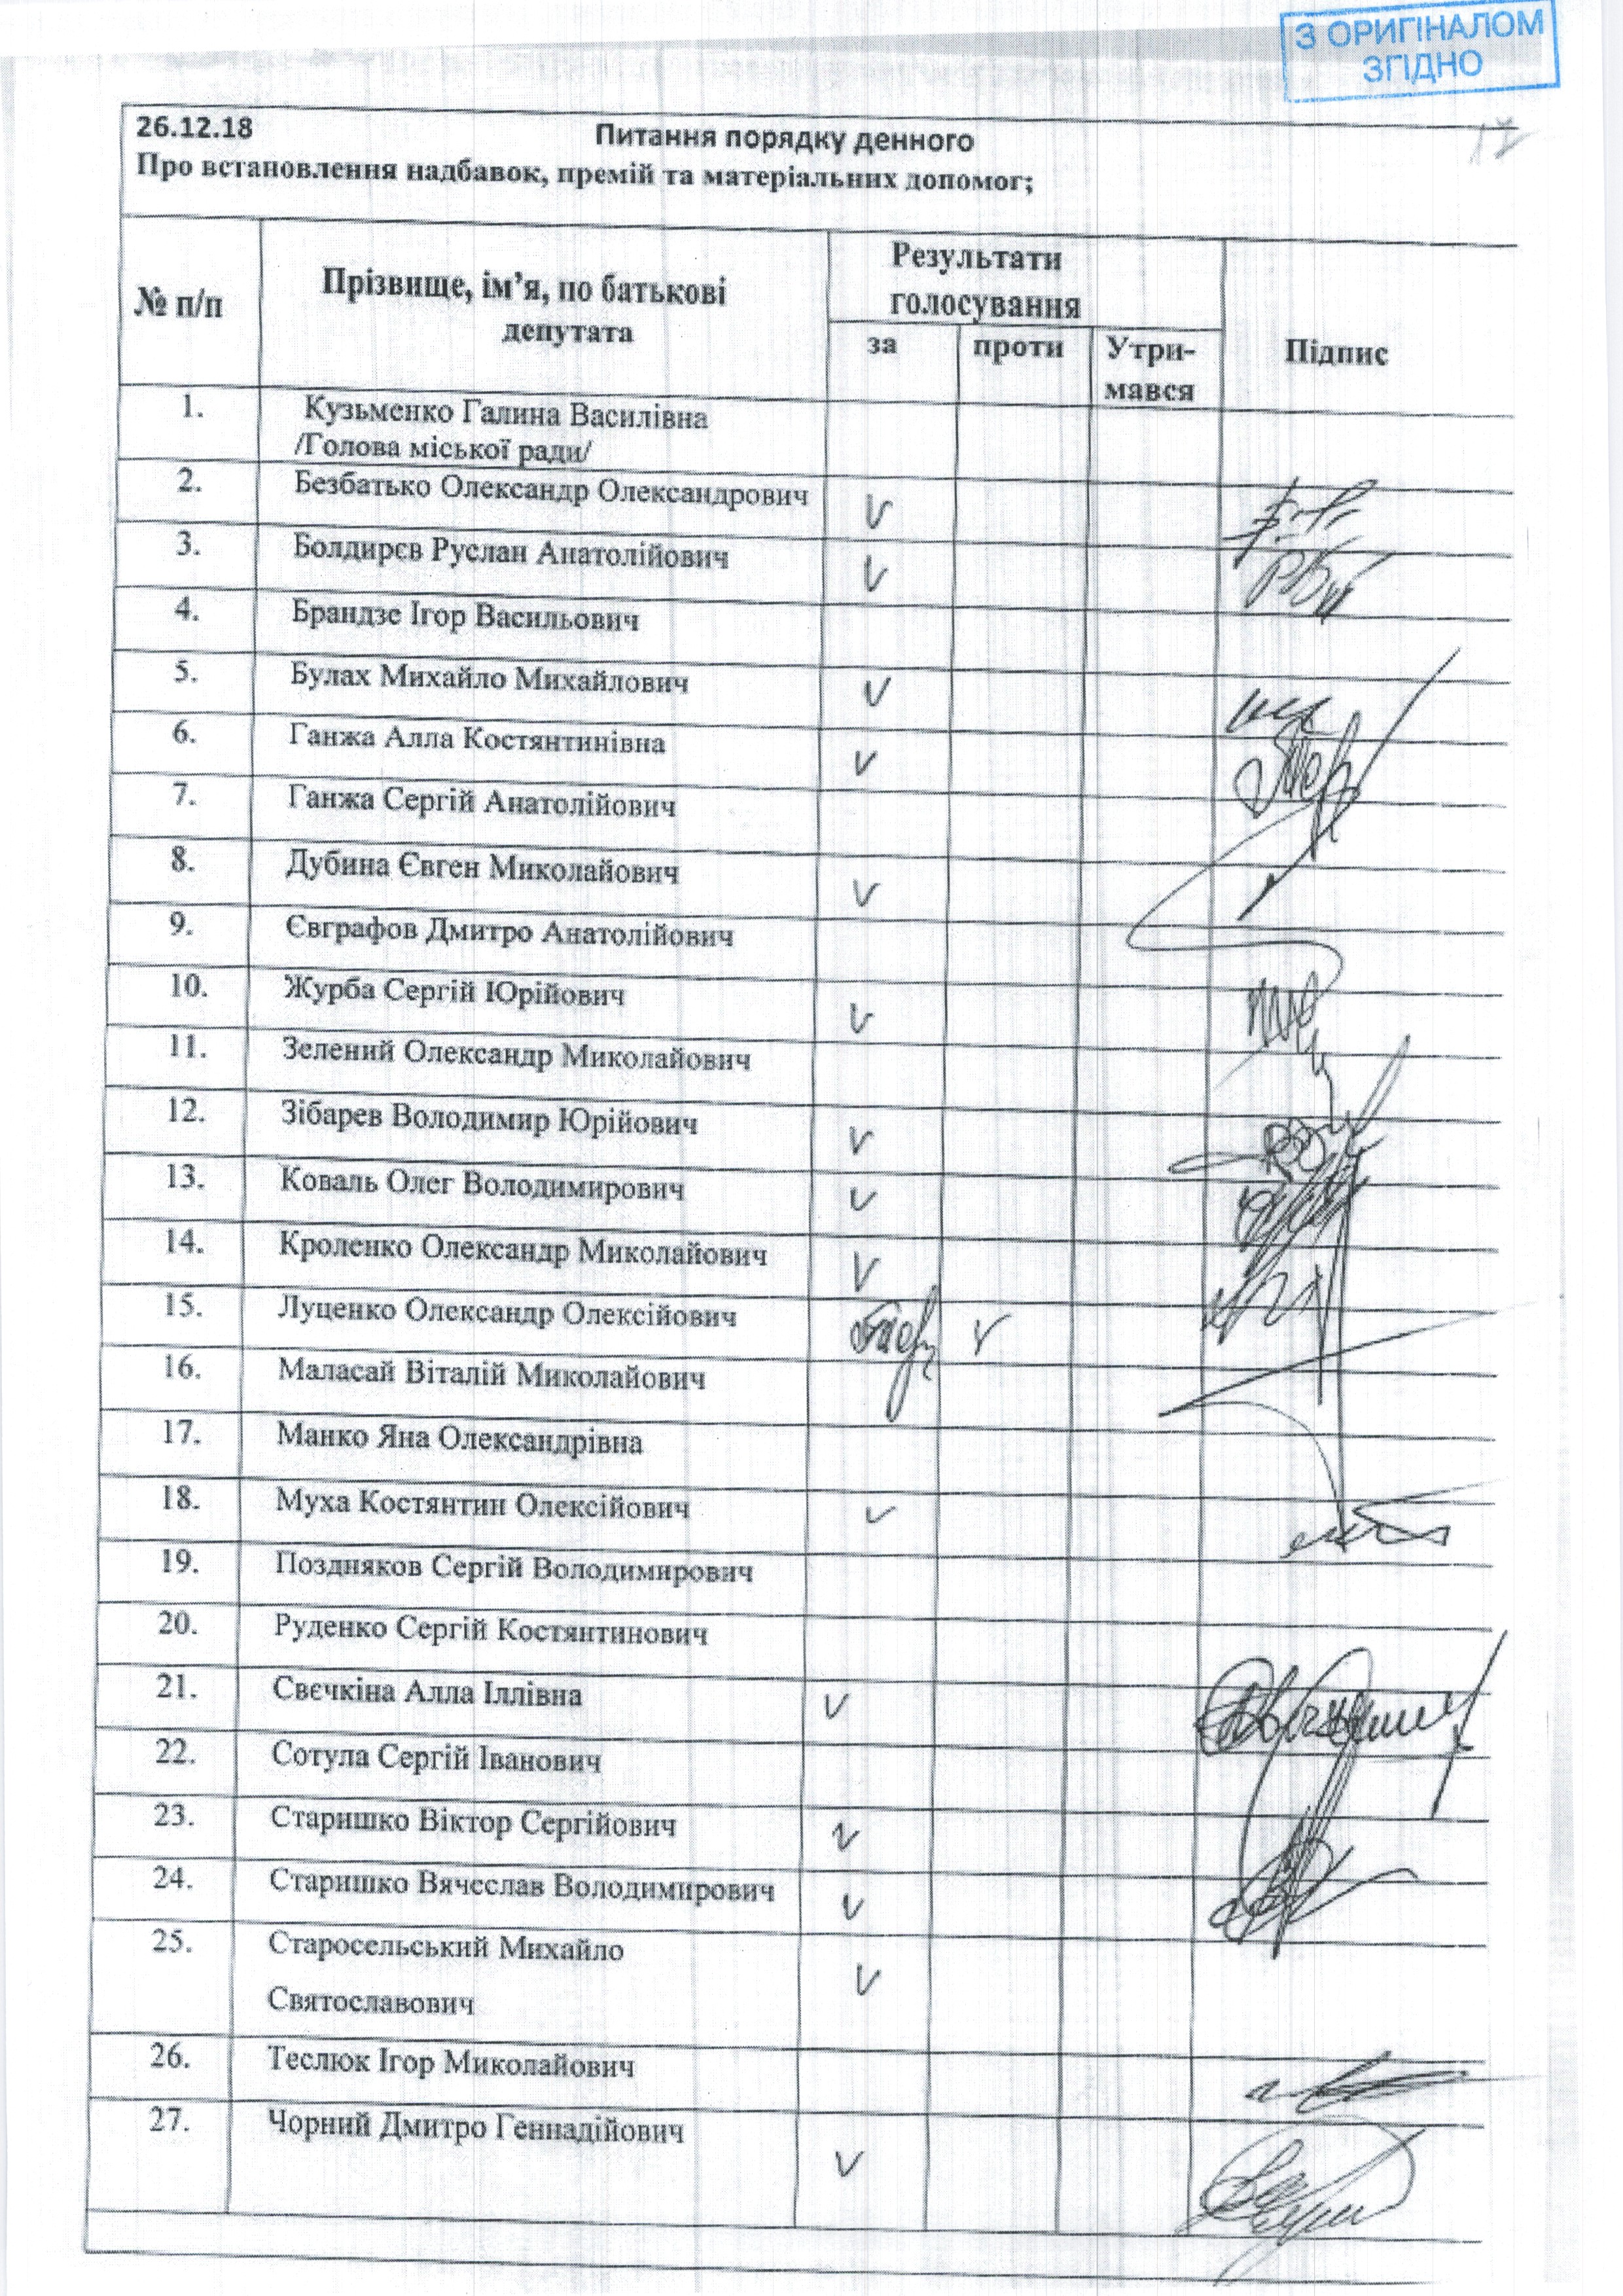 З ОРИГІНАЛОМ
ЗГІДНО
26.12.18 Питання порядку денного
Про встановлення надбавок, премій та матеріальних допомог;
№ п/п
Прізвище, ім'я, по батькові
депутата
Результати
голосування
за проти Утри-
мався
Підпис
1. Кузьменко Галина Василівна
/Голова міської ради/
2. Безбатько Олександр Олександрович V
3. Болдирєв Руслан Анатолійович V
4. Брандзе Ігор Васильович
5. Булах Михайло Михайлович V
6. Ганжа Алла Костянтинівна V
7. Ганжа Сергій Анатолійович
8. Дубина Євген Миколайович V
9. Євграфов Дмитро Анатолійович
10. Журба Сергій Юрійович V
11. Зелений Олександр Миколайович
12. Зібарев Володимир Юрійович V
13. Коваль Олег Володимирович V
14. Кроленко Олександр Миколайович V
15. Луценко Олександр Олексійович V
16. Маласай Віталій Миколайович
17. Манко Яна Олександрівна
18. Муха Костянтин Олексійович V
19. Поздняков Сергій Володимирович
20. Руденко Сергій Костянтинович
21. Свєчкіна Алла Іллівна V
22. Сотула Сергій Іванович
23. Старишко Віктор Сергійович V
24. Старишко Вячеслав Володимирович V
25. Старосельський Михайло
Святославович V
26. Теслюк Ігор Миколайович
27. Чорний Дмитро Геннадійович V